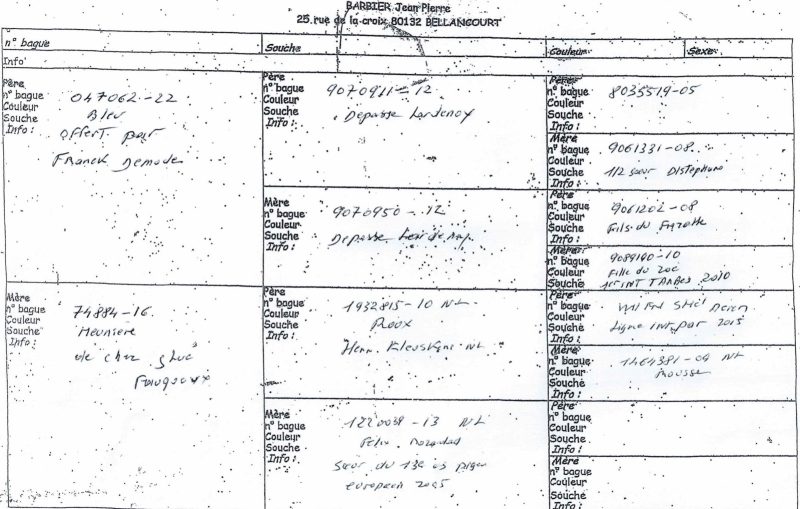 BARBIER Jean Pierre
25 rue de la croix 80132 BELLANCOURT
n° bague
Souche
Couleur
Sexe
Info
Père
n° bague 047062-22
Couleur Bleu
Souche
Info: offert par
Franck Demode
Père
n° bague 9070911-12
Couleur
Souche Depasse Lardenoy
Info:
Père
n° bague 8035519-05
Couleur
Mère
n° bague 9061331-08
Couleur
Souche 1/2 sœur
Info:
Mère
n° bague 9070950-12
Couleur
Souche Depasse
Info:
Père
n° bague 9061202-08
Couleur
Souche Fils du
Info:
Mère
n° bague 9089140-10
Couleur Fille du
Souche 1er INT TARBES 2010
Mère
n° bague 74884-16
Couleur
Souche Meuniere
Info: de chez
Père
n° bague 1932815-10 NL
Couleur Roux
Souche
Info: NL
Père
n° bague
Couleur
Souche Ligne INT par 2015
Info:
Mère
n° bague 1464381-09 NL
Couleur Rousse
Souche
Info:
Mère
n° bague 1220039-13 NL
Couleur
Souche
Info: Sœur du 13e as pigeon
europeen 2015
Père
n° bague
Couleur
Souche
Info:
Mère
n° bague
Couleur
Souche
Info: